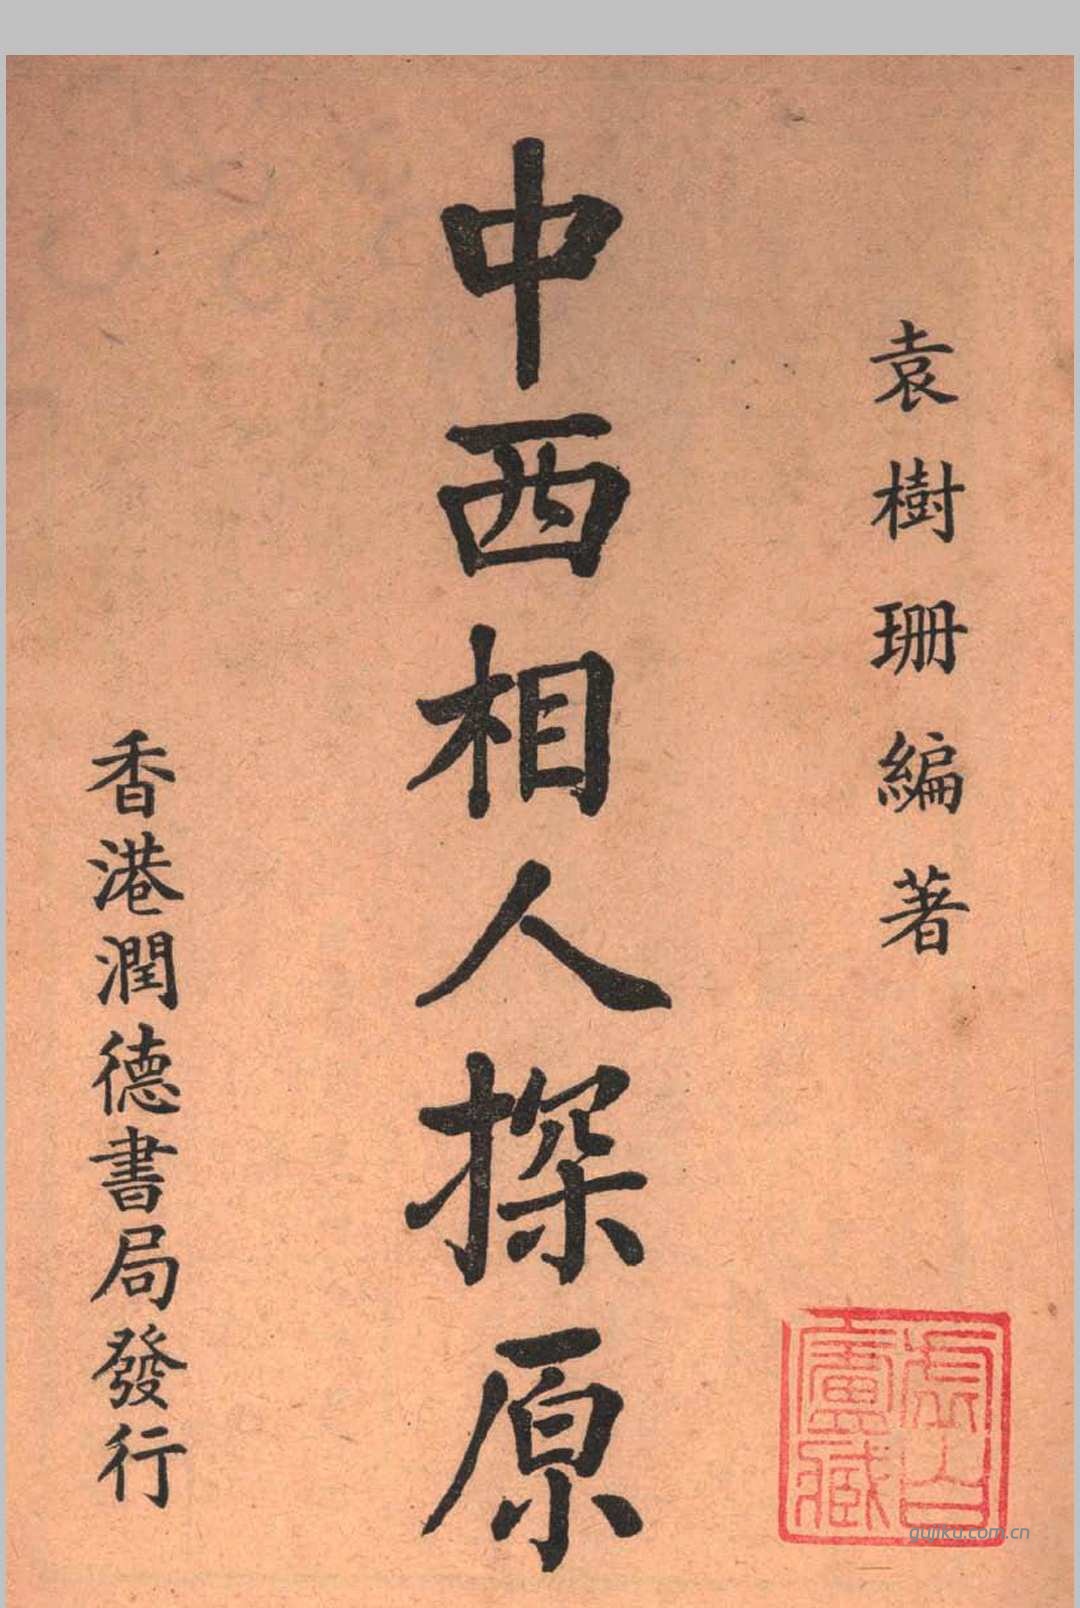 袁樹珊編著
中西相人探原
香港潤德書局發行
gujiku.com.cn